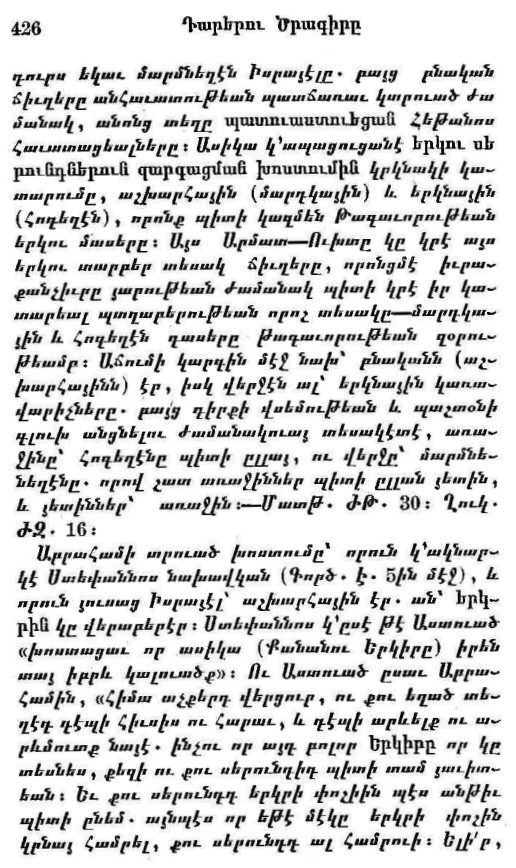 426
Դարերու Ծրագիրը
դուրս եկաւ մարմնեղէն Իսրայէլը. բայց բնական
ճիւղերը անհաւատութեան պատճառաւ կտրուած ժա
մանակ, անոնց տեղը պատուաստուեցան Հեթանոս
հաւատացեալները։ Ասիկա կ՚ապացուցանէ երկու սե
րունդներուն զարգացման խոստումին կրկնակի կա-
տարումը, աշխարհային (մարդկային) և երկնային
(հոգեղէն), որոնք պիտի կազմեն թագաւորութեան
երկու մասերը։ Այս Արմատ—Ուխտը կը կրէ այս
երկու տարբեր տեսակ ճիւղերը, որոնցմէ իւրա-
քանչիւրը յարութեան ժամանակ պիտի կրէ իր կա-
տարեալ պտղաբերութեան որոշ տեսակը—մարդկա-
յին և հոգեղէն դասերը թագաւորութեան զօրու-
թեամբ։ Աճումի կարգին մէջ նախ՝ բնականն (աշ-
խարհայինն) էր, իսկ վերջէն ալ՝ երկնային կառա-
վարիչները. բայց դիրքի վսեմութեան և պաշտօնի
գլուխ անցնելու ժամանակուայ տեսակէտէ, առա-
ջինը՝ հոգեղէնը պիտի ըլլայ, ու վերջը՝ մարմնե-
նեղէնը. որով շատ առաջիններ պիտի ըլլան յետին,
և յետիններ՝ առաջին։—Մատթ. ԺԹ. 30։ Ղուկ.
ԺԶ. 16։
Աբրահամի տրուած խոստումը՝ որուն կ՚ակնար-
կէ Ստեփաննոս նախավկան (Գործ. Է. 5ին մէջ), և
որուն յուսաց Իսրայէլ՝ աշխարհային էր. ան՝ երկ-
րին կը վերաբերէր։ Ստեփաննոս կ՚ըսէ թէ Աստուած
«խոստացաւ որ ասիկա (Քանանու Երկիրը) իրեն
տայ իբրև կալուածք»։ Ու Աստուած ըսաւ Աբրա-
համին, «Հիմա աչքերդ վերցուր, ու քու եղած տե-
ղէդ դէպի հիւսիս ու հարաւ, և դէպի արևելք ու ա-
րևմուտք նայէ. ինչու որ այդ բոլոր երկիրը որ կը
տեսնես, քեզի ու քու սերունդիդ պիտի տամ յաւիտ-
եան։ Եւ քու սերունդդ երկրի փոշիին պէս անթիւ
պիտի ընեմ. այնպէս որ եթէ մէկը երկրի փոշին
կրնայ համրել, քու սերունդդ ալ համրուի։ Ելի՛ր,